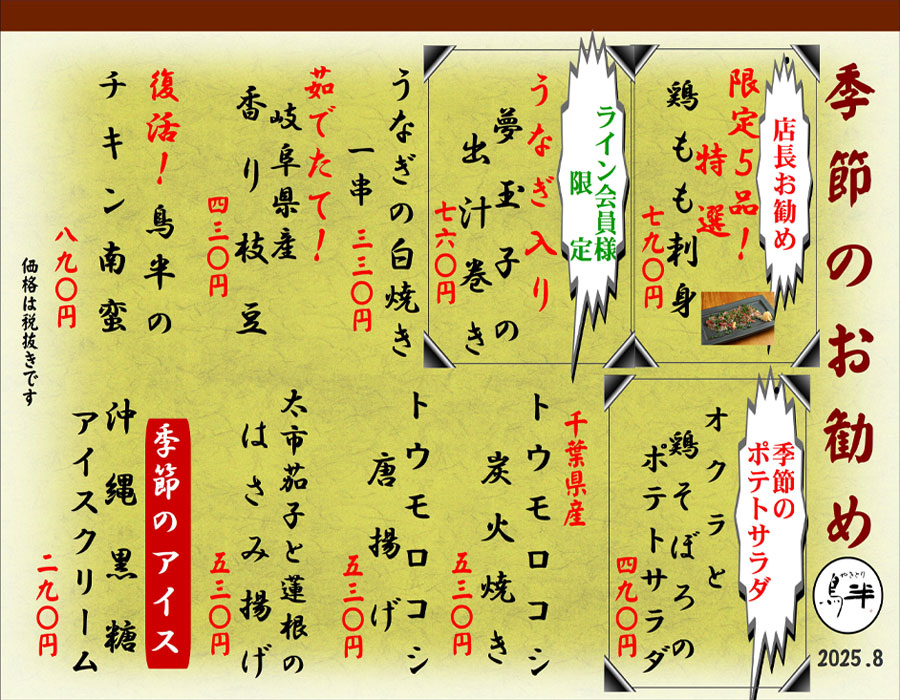 季節のお勧め
やきとり
鳥半
2025.8
店長お勧め
限定5品!
特選
鶏もも刺身
七九〇円
ライン会員様
限定
うなぎ入り
夢玉子の
出汁巻き
七六〇円
うなぎの白焼き
一串
三三〇円
茹でたて!
岐阜県産
香り枝豆
四三〇円
復活!鳥半の
チキン南蛮
八九〇円
価格は税抜きです
季節の
ポテトサラダ
オクラと
鶏そぼろの
ポテトサラダ
四九〇円
千葉県産
トウモロコシ
炭火焼き
五三〇円
トウモロコシ
唐揚げ
五三〇円
太市茄子と蓮根の
はさみ揚げ
五三〇円
季節のアイス
沖縄黒糖
アイスクリーム
二九〇円